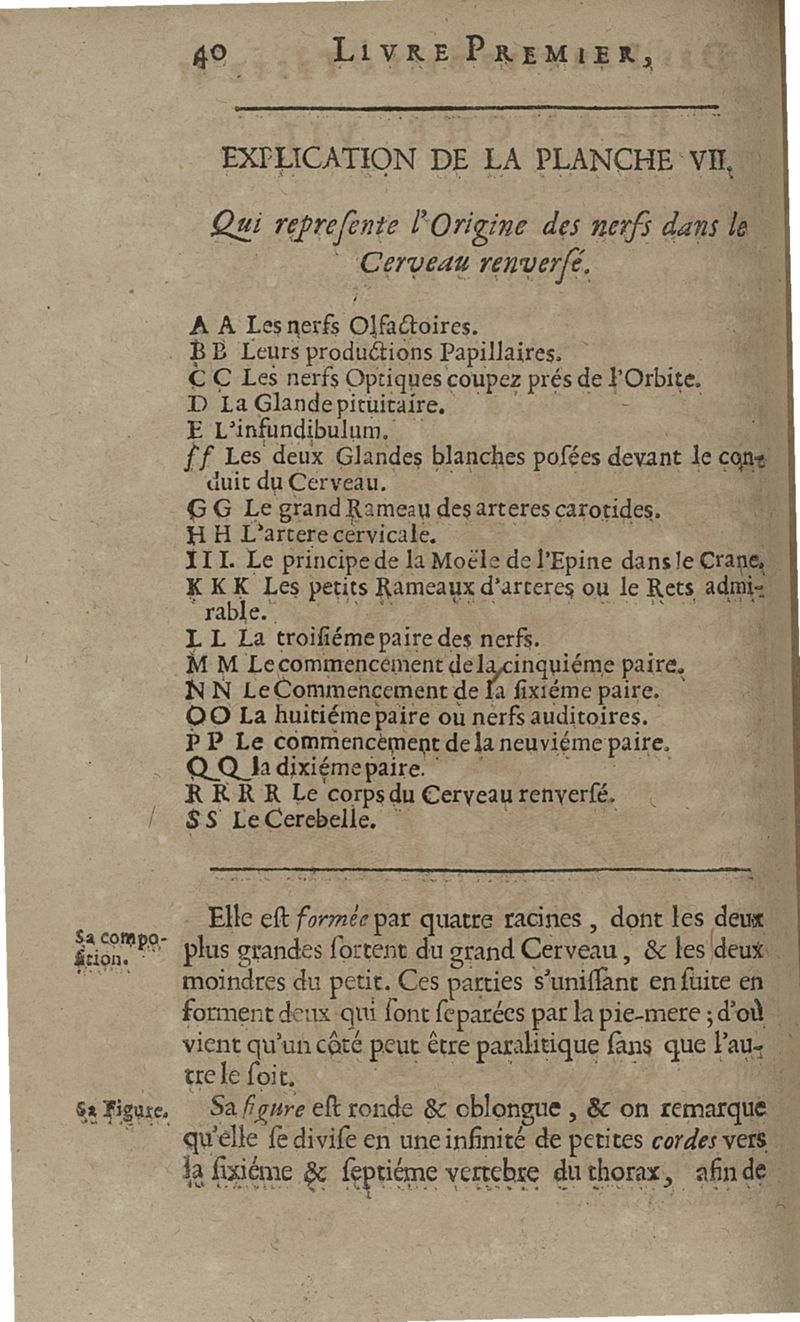 40 LIVRE PREMIER,
EXPLICATION DE LA PLANCHE VII.
Qui repreſente l'Origine des nerfs dans le
Cerveau renverſé.
A A Les nerfs Olfactoires.
B B Leurs productions Papillaires.
C C Les nerfs Optiques coupez prés de l'Orbite.
D La Glande pituitaire.
E L'infundibulum.
ff Les deux Glandes blanches poſées devant le con-
duit du Cerveau.
G G Le grand Rameau des arteres carotides.
H H L'artere cervicale.
I I I. Le principe de la Moële de l'Epine dans le Crane.
K K K Les petits Rameaux d'arteres ou le Rets admi-
rable.
L L La troiſiéme paire des nerfs.
M M Le commencement de la cinquiéme paire.
N N Le Commencement de la ſixiéme paire.
O O La huitiéme paire ou nerfs auditoires.
P P Le commencement de la neuviéme paire.
Q Q la dixiéme paire.
R R R R Le corps du Cerveau renverſé.
S S Le Cerebelle.
Elle eſt formée par quatre racines, dont les deux
Sa compo-
ſition.
plus grandes ſortent du grand Cerveau, & les deux
moindres du petit. Ces parties s'uniſſant en ſuite en
forment deux qui ſont ſeparées par la pie-mere ; d'où
vient qu'un côté peut être paralitique ſans que l'au-
tre le ſoit.
Sa Figure.
Sa figure eſt ronde & oblongue, & on remarque
qu'elle ſe diviſe en une infinité de petites cordes vers
la ſixiéme & ſeptiéme vertebre du thorax, afin de